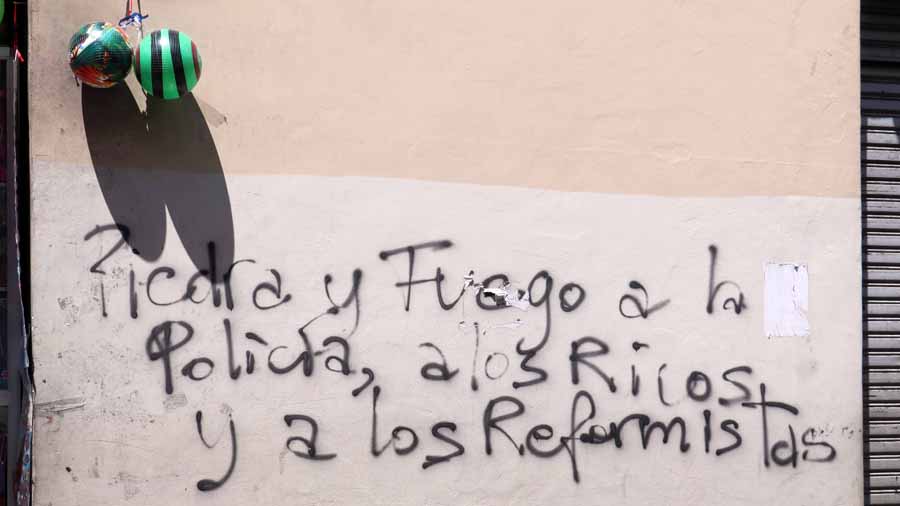 Piedra y Fuego a la
Policía, a los Ricos
y a los Reformistas